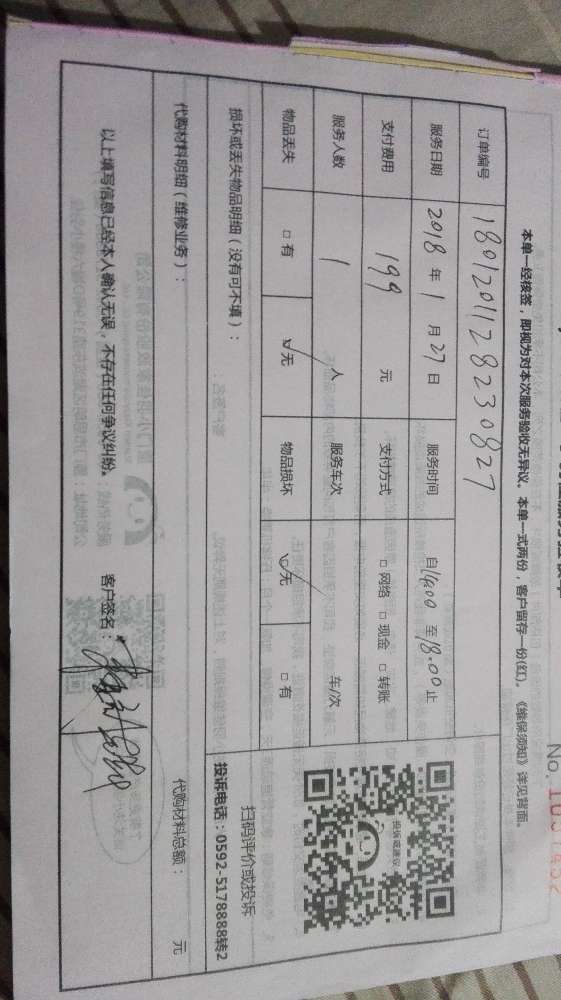 No.
本单一经核签，即视为对本次服务验收无异议。本单一式两份，客户留存一份(红)。《维保须知》详见背面。
订单编号 180120112823082​7
服务日期 2018 年 1 月 27 日 服务时间 自14:00 至18:00止
支付费用 199 元 支付方式 □ 网络 □ 现金 □ 转账
服务人数 1 人 服务车次 车/次
物品丢失 □ 有 ☑无 物品损坏 ☑无 □ 有
损坏或丢失物品明细（没有可不填）：
投诉或建议
扫码评价或投诉
投诉电话：0592-5178888转2
代购材料明细（维修业务）： 代购材料总额： 元
以上填写信息已经本人确认无误，不存在任何争议纠纷。 客户签名：